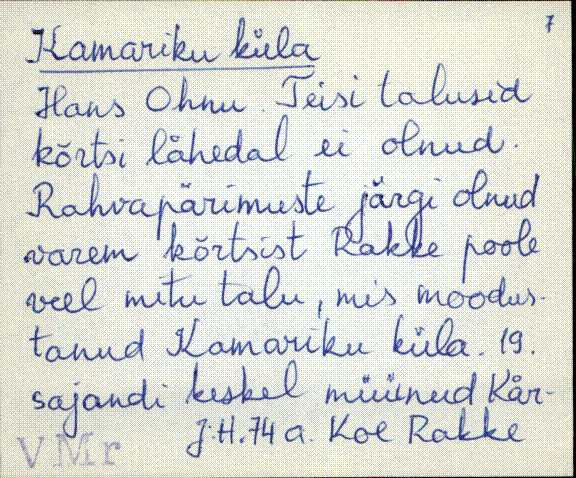 7
Kamariku küla
Hans Ohnu. Teisi talusid
kõrtsi lähedal ei olnud.
Rahvapärimuste järgi olnud
varem kõrtsist Rakke poole
veel mitu talu, mis moodus-
tanud Kamariku küla. 19.
sajandi keskel müünud Kär-
J.H. 74 a. Koe Rakke
VMr